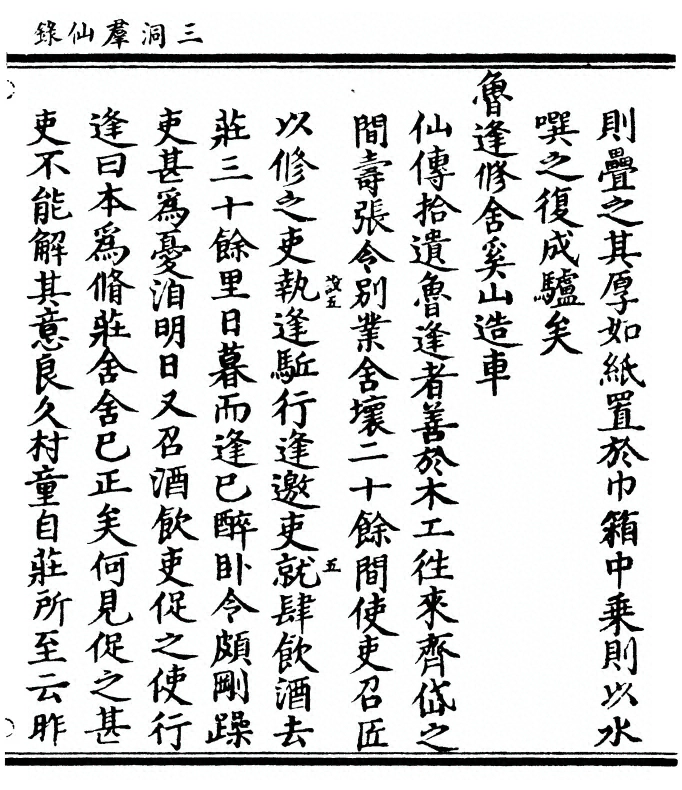 三洞羣仙錄
則疊之其厚如紙置於巾箱中乗則以水
噀之復成驢矣
魯逢修舍奚山造車
仙傳拾遺魯逢者善於木工徃來齊岱之
間壽張令別業舍壞二十餘間使吏召匠
以修之吏執逢駈行逢邀吏就肆飲酒去
設五
五
莊三十餘里日暮而逢巳醉卧令頗剛躁
吏甚爲憂洎明日又召酒飲吏促之使行
逢曰本爲脩莊舍舍巳正矣何見促之甚
吏不能解其意良久村童自莊所至云昨